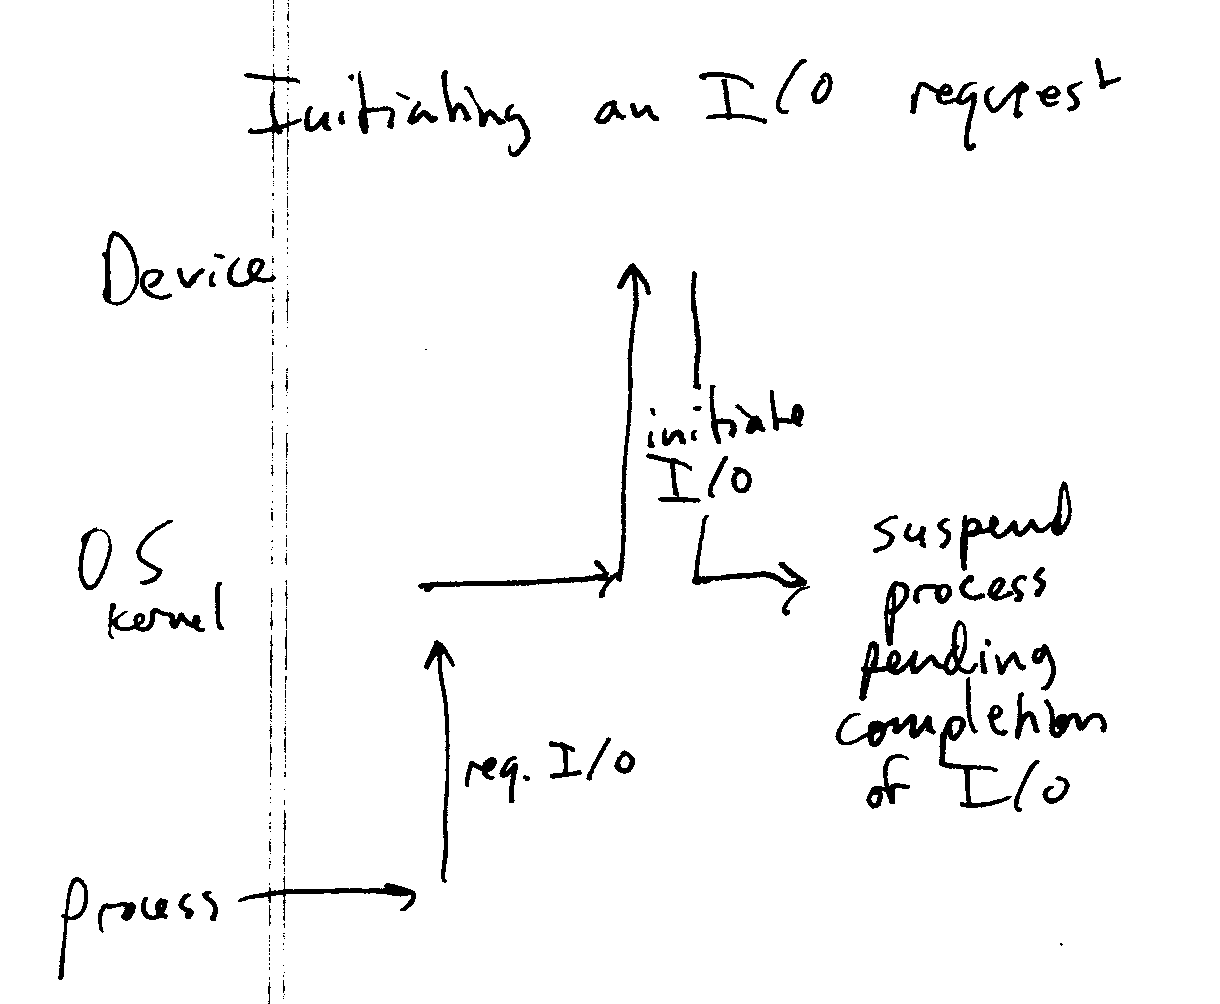 Initiating an I/O request
Device
initiate
I/O
OS
kernel
suspend
process
pending
completion
of I/O
req. I/O
process